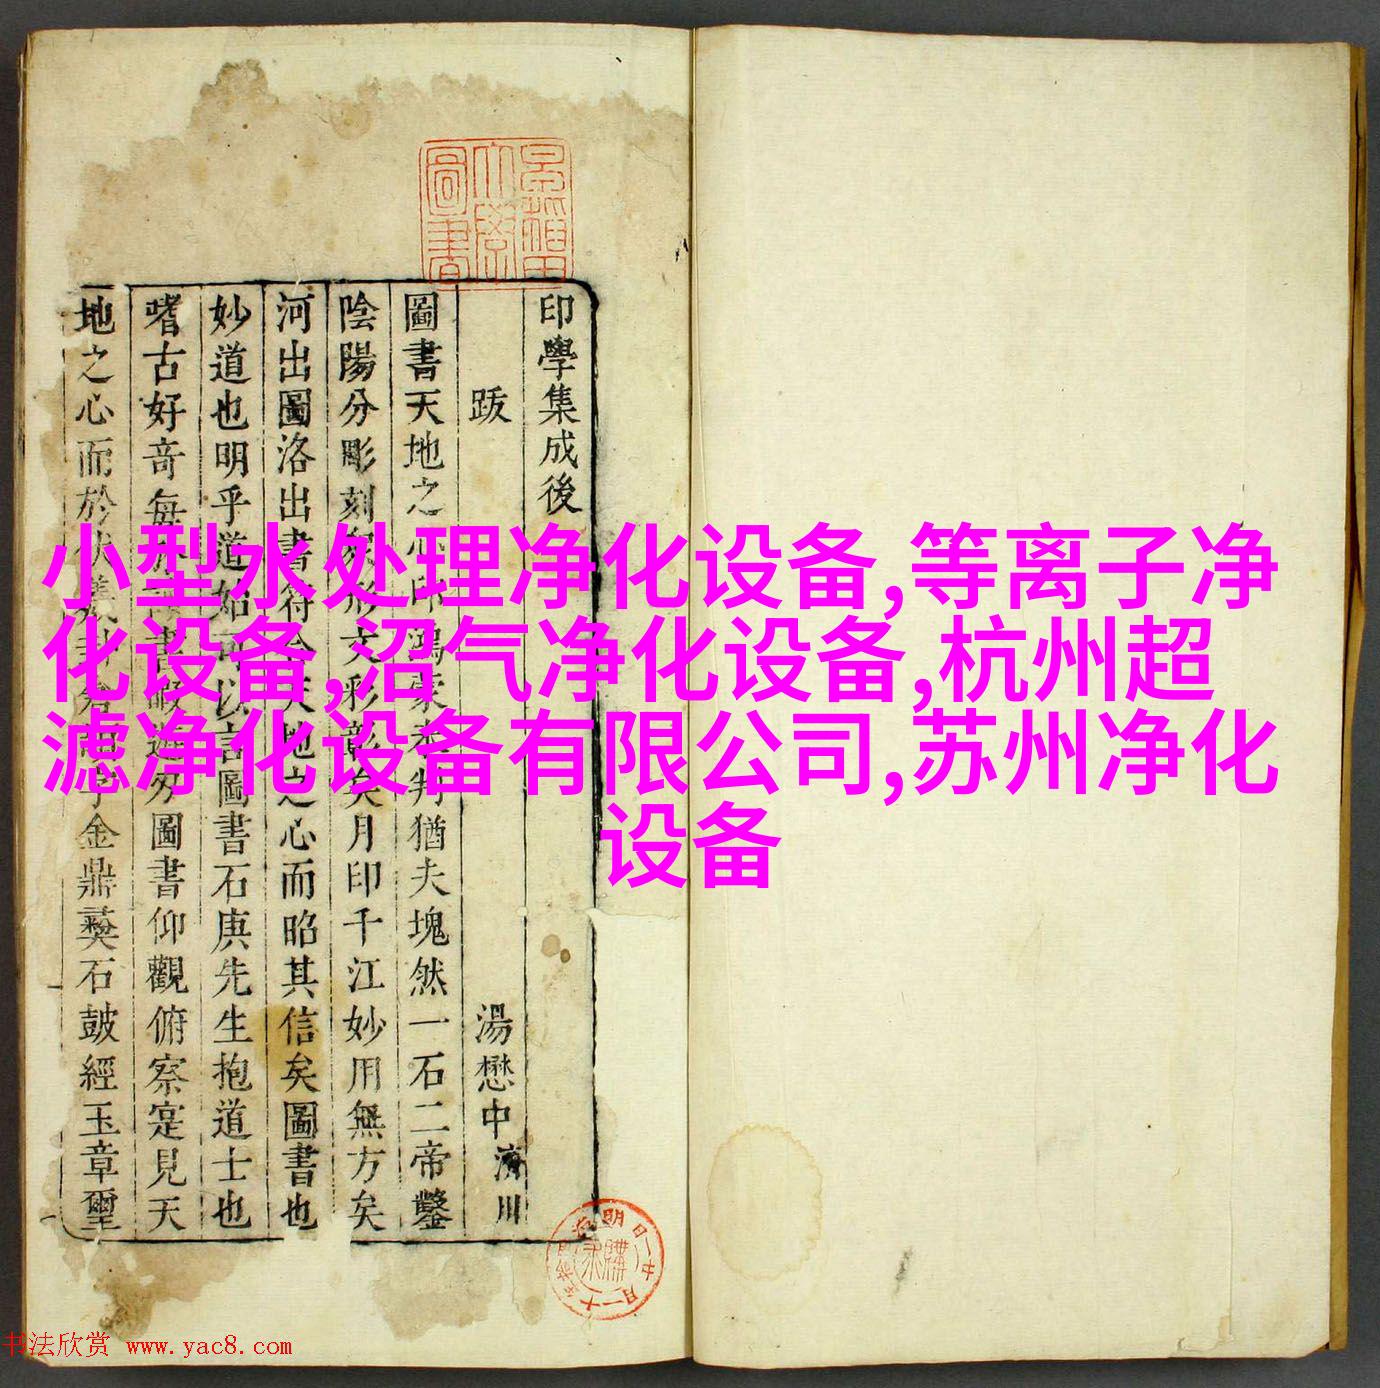 印學集成後
跋
湯懋中
濟川
圖書天地之心印鴻蒙未判猶夫塊然一石二帝鑿
陰陽分彫刻衆形文彩彰矣月印千江妙用無方矣
河出圖洛出書符合天地之心而昭其信矣圖書也
妙道也明乎道始可以言圖書石庚先生抱道士也
嗜古好竒每
書
圖書仰觀俯察寔見天
地之心而於伏羲
金鼎彝石鼓經玉章璽
小型水处理净化设备,等离子净
化设备,沼气净化设备,杭州超
滤净化设备有限公司,苏州净化
设备
书法欣赏 www.yac8.com